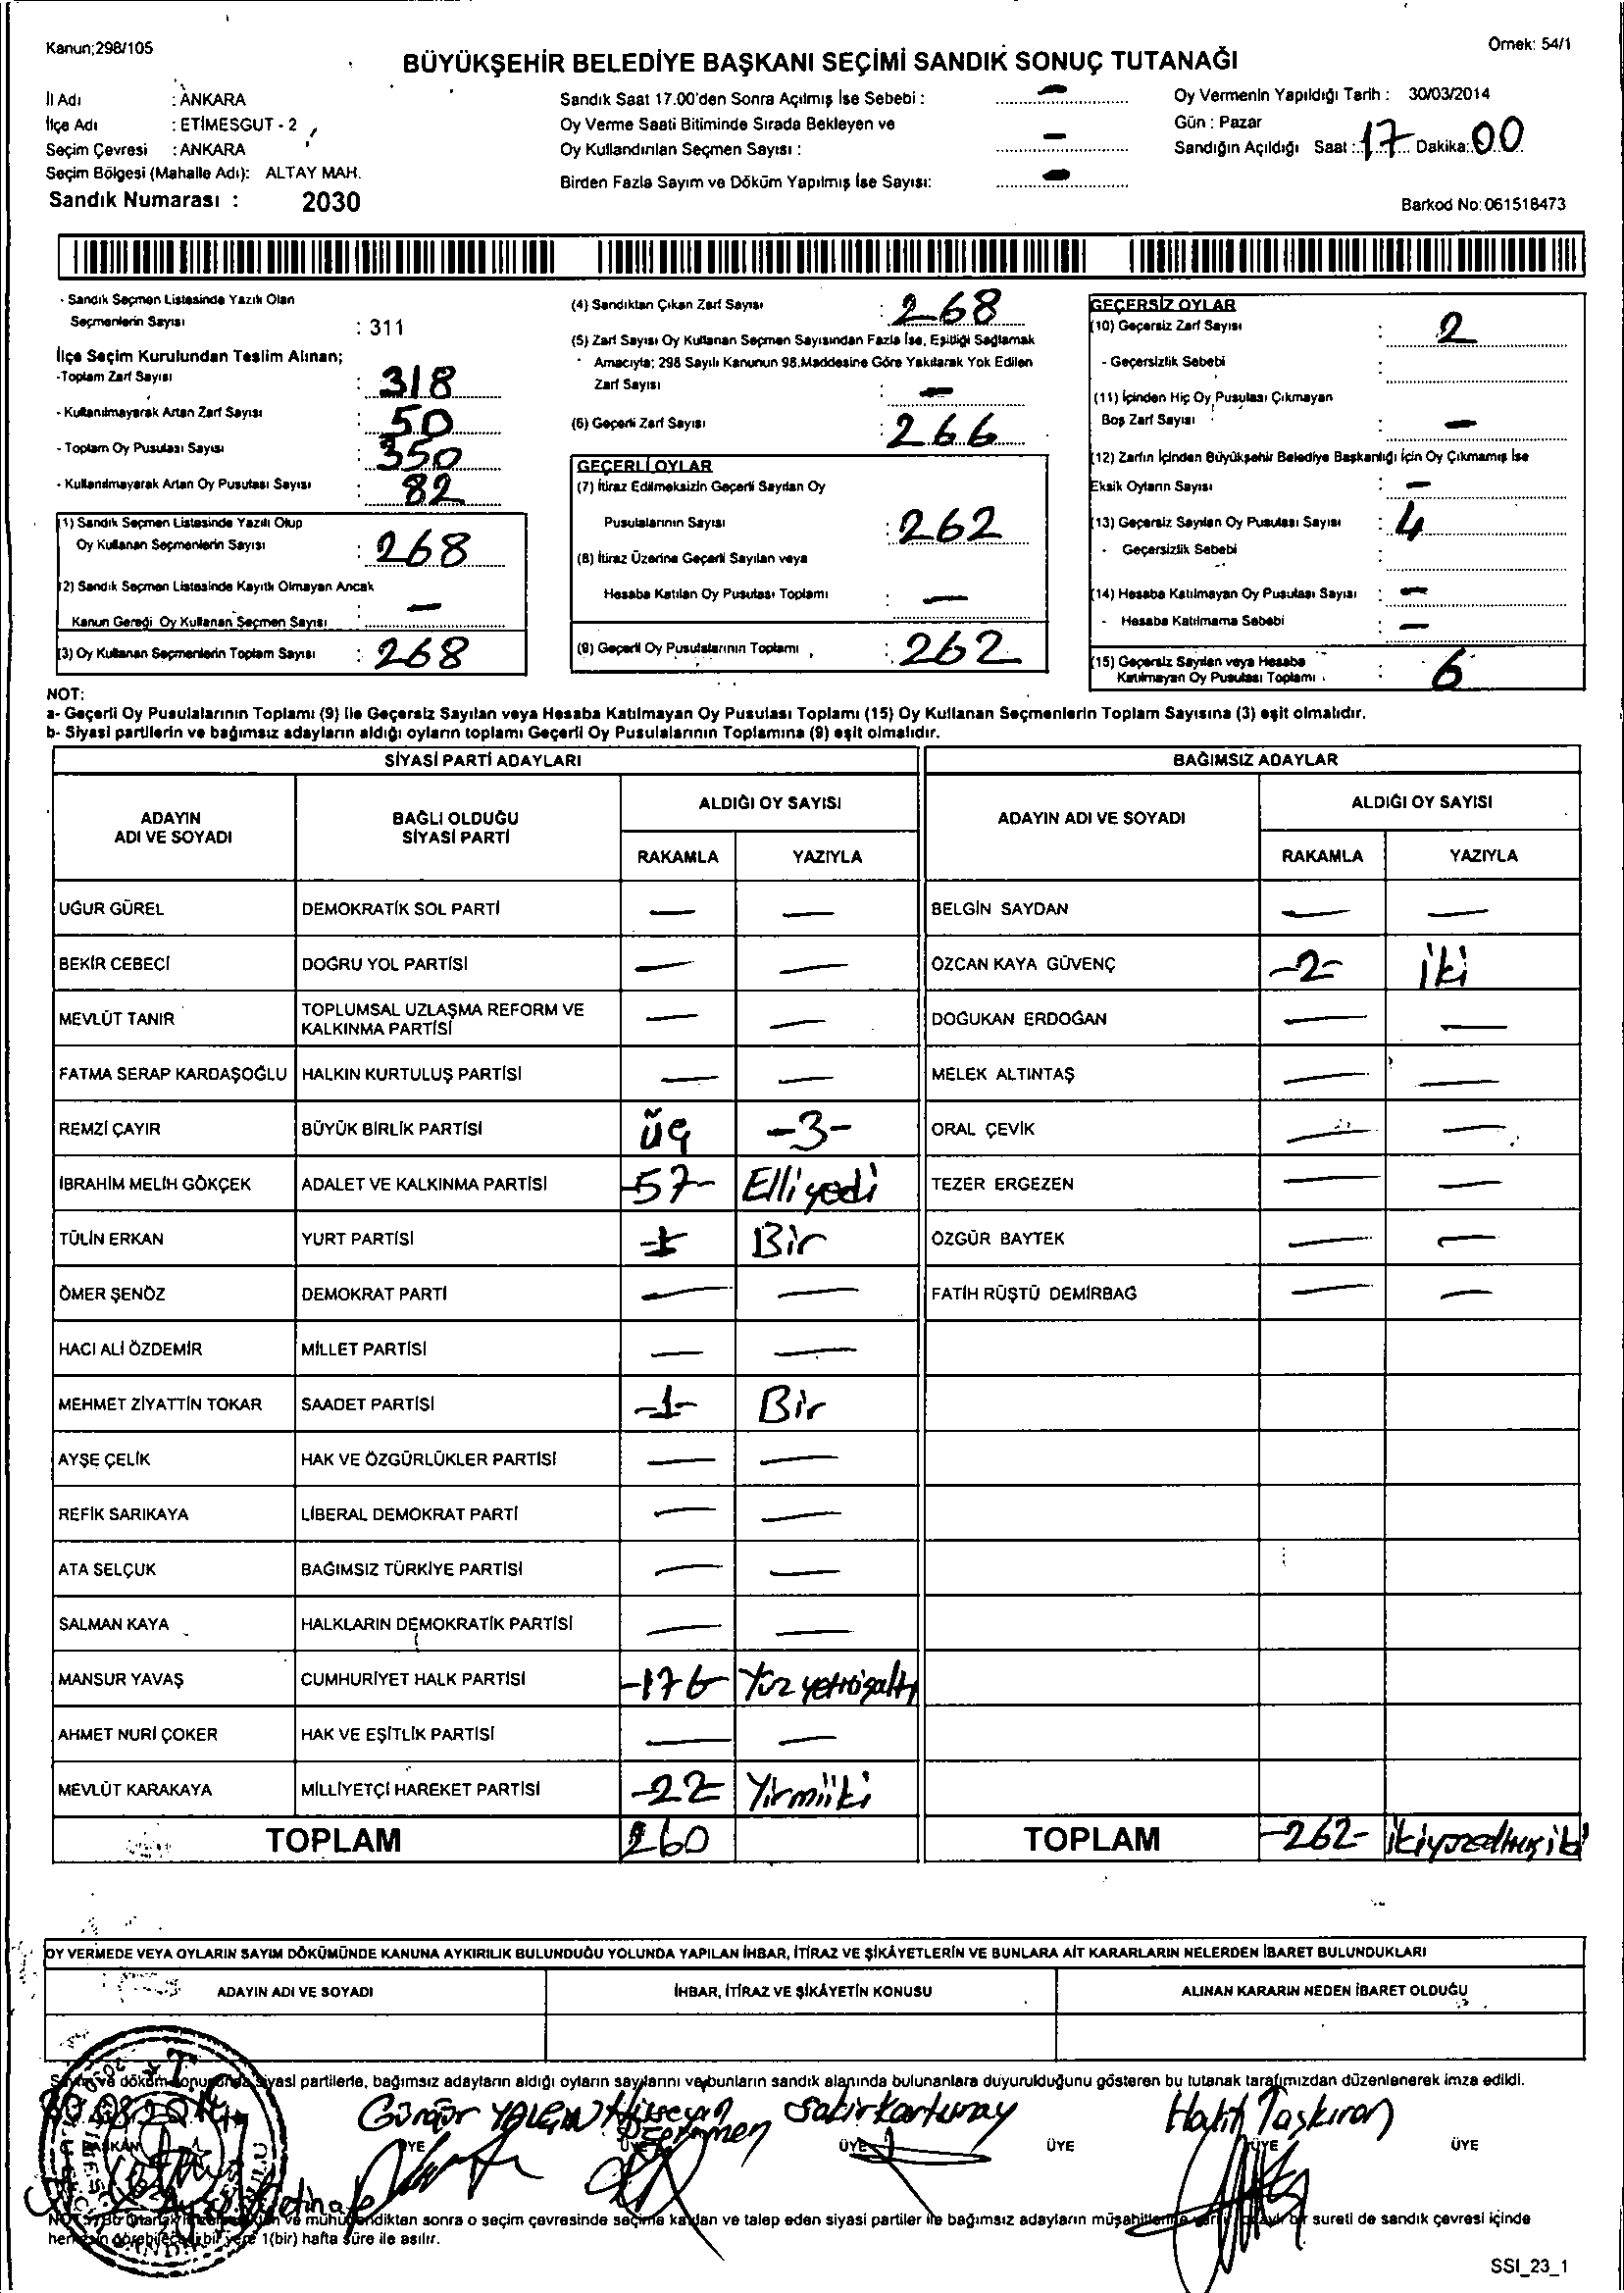 Kanun;298/105
Örnek: 54/1
BÜYÜKŞEHİR BELEDİYE BAŞKANI SEÇİMİ SANDIK SONUÇ TUTANAĞI
İl Adı : ANKARA
İlçe Adı : ETİMESGUT - 2
Seçim Çevresi : ANKARA
Seçim Bölgesi (Mahalle Adı): ALTAY MAH.
Sandık Numarası : 2030
Sandık Saat 17.00'den Sonra Açılmış İse Sebebi : –
Oy Verme Saati Bitiminde Sırada Bekleyen ve
Oy Kullandırılan Seçmen Sayısı : –
Birden Fazla Sayım ve Döküm Yapılmış İse Sayısı: –
Oy Vermenin Yapıldığı Tarih : 30/03/2014
Gün : Pazar
Sandığın Açıldığı Saat : 17 Dakika: 00
Barkod No: 061518473
- Sandık Seçmen Listesinde Yazılı Olan
Seçmenlerin Sayısı : 311
İlçe Seçim Kurulundan Teslim Alınan;
-Toplam Zarf Sayısı : 318
- Kullanılmayarak Artan Zarf Sayısı : 50
- Toplam Oy Pusulası Sayısı : 350
- Kullanılmayarak Artan Oy Pusulası Sayısı : 82
(1) Sandık Seçmen Listesinde Yazılı Olup
Oy Kullanan Seçmenlerin Sayısı : 268
(2) Sandık Seçmen Listesinde Kayıtlı Olmayan Ancak
Kanun Gereği Oy Kullanan Seçmen Sayısı : –
(3) Oy Kullanan Seçmenlerin Toplam Sayısı : 268
(4) Sandıktan Çıkan Zarf Sayısı : 268
(5) Zarf Sayısı Oy Kullanan Seçmen Sayısından Fazla İse, Eşitliği Sağlamak
Amacıyla; 298 Sayılı Kanunun 98.Maddesine Göre Yakılarak Yok Edilen
Zarf Sayısı : –
(6) Geçerli Zarf Sayısı : 266
GEÇERLİ OYLAR
(7) İtiraz Edilmeksizin Geçerli Sayılan Oy
Pusulalarının Sayısı : 262
(8) İtiraz Üzerine Geçerli Sayılan veya
Hesaba Katılan Oy Pusulası Toplamı : –
(9) Geçerli Oy Pusulalarının Toplamı : 262
GEÇERSİZ OYLAR
(10) Geçersiz Zarf Sayısı : 2
- Geçersizlik Sebebi :
(11) İçinden Hiç Oy Pusulası Çıkmayan
Boş Zarf Sayısı : –
(12) Zarfın İçinden Büyükşehir Belediye Başkanlığı İçin Oy Çıkmamış İse
Eksik Oyların Sayısı : –
(13) Geçersiz Sayılan Oy Pusulası Sayısı : 4
- Geçersizlik Sebebi :
(14) Hesaba Katılmayan Oy Pusulası Sayısı : –
- Hesaba Katılmama Sebebi : –
(15) Geçersiz Sayılan veya Hesaba
Katılmayan Oy Pusulası Toplamı : 6
NOT:
a- Geçerli Oy Pusulalarının Toplamı (9) ile Geçersiz Sayılan veya Hesaba Katılmayan Oy Pusulası Toplamı (15) Oy Kullanan Seçmenlerin Toplam Sayısına (3) eşit olmalıdır.
b- Siyasi partilerin ve bağımsız adayların aldığı oyların toplamı Geçerli Oy Pusulalarının Toplamına (9) eşit olmalıdır.
SİYASİ PARTİ ADAYLARI BAĞIMSIZ ADAYLAR
ADAYIN ADI VE SOYADI BAĞLI OLDUĞU SİYASİ PARTİ ALDIĞI OY SAYISI ADAYIN ADI VE SOYADI ALDIĞI OY SAYISI
RAKAMLA YAZIYLA RAKAMLA YAZIYLA
UĞUR GÜREL DEMOKRATİK SOL PARTİ — — BELGİN SAYDAN — —
BEKİR CEBECİ DOĞRU YOL PARTİSİ — — ÖZCAN KAYA GÜVENÇ -2- iki
MEVLÜT TANIR TOPLUMSAL UZLAŞMA REFORM VE KALKINMA PARTİSİ — — DOĞUKAN ERDOĞAN — —
FATMA SERAP KARDAŞOĞLU HALKIN KURTULUŞ PARTİSİ — — MELEK ALTINTAŞ — —
REMZİ ÇAYIR BÜYÜK BİRLİK PARTİSİ üç -3- ORAL ÇEVİK — —
İBRAHİM MELİH GÖKÇEK ADALET VE KALKINMA PARTİSİ -57- Elliyedi TEZER ERGEZEN — —
TÜLİN ERKAN YURT PARTİSİ -1- Bir ÖZGÜR BAYTEK — —
ÖMER ŞENÖZ DEMOKRAT PARTİ — — FATİH RÜŞTÜ DEMİRBAĞ — —
HACI ALİ ÖZDEMİR MİLLET PARTİSİ — —
MEHMET ZİYATTİN TOKAR SAADET PARTİSİ -1- Bir
AYŞE ÇELİK HAK VE ÖZGÜRLÜKLER PARTİSİ — —
REFİK SARIKAYA LİBERAL DEMOKRAT PARTİ — —
ATA SELÇUK BAĞIMSIZ TÜRKİYE PARTİSİ — —
SALMAN KAYA HALKLARIN DEMOKRATİK PARTİSİ — —
MANSUR YAVAŞ CUMHURİYET HALK PARTİSİ -176- Yüz yetmişaltı
AHMET NURİ ÇOKER HAK VE EŞİTLİK PARTİSİ — —
MEVLÜT KARAKAYA MİLLİYETÇİ HAREKET PARTİSİ -22- Yirmiiki
TOPLAM 260 TOPLAM -262-
OY VERMEDE VEYA OYLARIN SAYIM DÖKÜMÜNDE KANUNA AYKIRILIK BULUNDUĞU YOLUNDA YAPILAN İHBAR, İTİRAZ VE ŞİKÂYETLERİN VE BUNLARA AİT KARARLARIN NELERDEN İBARET BULUNDUKLARI
ADAYIN ADI VE SOYADI İHBAR, İTİRAZ VE ŞİKÂYETİN KONUSU ALINAN KARARIN NEDEN İBARET OLDUĞU
Sayım ve döküm sonucunda siyasi partilerle, bağımsız adayların aldığı oyların sayılarını ve bunların sandık alanında bulunanlara duyurulduğunu gösteren bu tutanak tarafımızdan düzenlenerek imza edildi.
Güngör YALÇIN Hüseyin Şakir Karturay Halit Taşkıran
BAŞKAN ÜYE ÜYE ÜYE ÜYE ÜYE ÜYE
ve mühürlendikten sonra o seçim çevresinde seçime katılan ve talep eden siyasi partiler ile bağımsız adayların müşahitlerine bir sureti de sandık çevresi içinde
herkesin görebileceği bir yere 1(bir) hafta süre ile asılır.
SSI_23_1